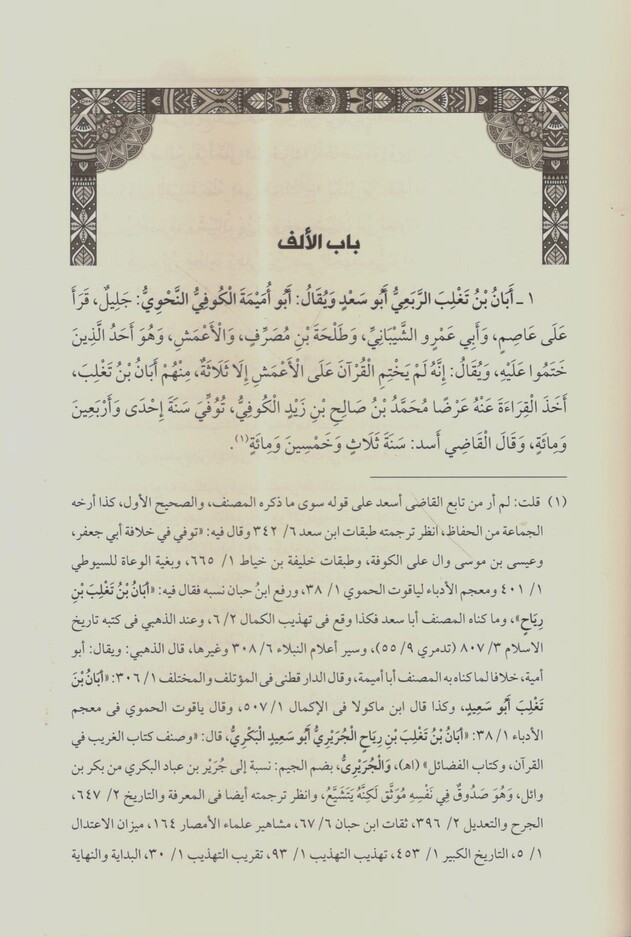 باب الألف
١ ـ أَبَانُ بْنُ تَغْلِبَ الرَّبَعِيُّ أَبُو سَعْدٍ وَيُقَالُ: أَبُو أُمَيْمَةَ الْكُوفِيُّ النَّحْوِيُّ: جَلِيلٌ، قَرَأَ
عَلَى عَاصِمٍ، وَأَبِي عَمْرٍو الشَّيْبَانِيِّ، وَطَلْحَةَ بْنِ مُصَرِّفٍ، وَالْأَعْمَشِ، وَهُوَ أَحَدُ الَّذِينَ
خَتَمُوا عَلَيْهِ، وَيُقَالُ: إِنَّهُ لَمْ يَخْتِمِ الْقُرْآنَ عَلَى الْأَعْمَشِ إِلَّا ثَلَاثَةٌ، مِنْهُمْ أَبَانُ بْنُ تَغْلِبَ،
أَخَذَ الْقِرَاءَةَ عَنْهُ عَرْضًا مُحَمَّدُ بْنُ صَالِحِ بْنِ زَيْدٍ الْكُوفِيُّ، تُوُفِّيَ سَنَةَ إِحْدَى وَأَرْبَعِينَ
وَمِائَةٍ، وَقَالَ الْقَاضِي أَسد: سَنَةَ ثَلَاثٍ وَخَمْسِينَ وَمِائَةٍ(١).
(١) قلت: لم أر من تابع القاضى أسعد على قوله سوى ما ذكره المصنف، والصحيح الأول، كذا أرخه
الجماعة من الحفاظ، انظر ترجمته طبقات ابن سعد ٦/ ٣٤٢ وقال فيه: «توفي في خلافة أبي جعفر،
وعيسى بن موسى وال على الكوفة، وطبقات خليفة بن خياط ١/ ٦٦٥، وبغية الوعاة للسيوطي
١/ ٤٠١ ومعجم الأدباء لياقوت الحموي ١/ ٣٨، ورفع ابنُ حبان نسبه فقال فيه: «أَبَانُ بْنُ تَغْلِبَ بْنِ
رِيَاحٍ»، وما كناه المصنف أبا سعد فكذا وقع فى تهذيب الكمال ٢/ ٦، وعند الذهبي فى كتبه تاريخ
الاسلام ٣/ ٨٠٧ (تدمري ٩/ ٥٥)، وسير أعلام النبلاء ٦/ ٣٠٨ وغيرها، قال الذهبي: ويقال: أبو
أمية، خلافا لما كناه به المصنف أبا أميمة، وقال الدارقطنى فى المؤتلف والمختلف ١/ ٣٠٦: «أَبَانُ بْنُ
تَغْلِبَ أَبُو سَعِيدٍ، وكذا قال ابن ماكولا فى الإكمال ١/ ٥٠٧، وقال ياقوت الحموى فى معجم
الأدباء ١/ ٣٨: «أَبَانُ بْنُ تَغْلِبَ بْنِ رِيَاحٍ الْجُرَيْرِيُّ أَبُو سَعِيدٍ الْبَكْرِيُّ، قال: «وصنف كتاب الغريب في
القرآن، وكتاب الفضائل» (اهـ)، وَالْجُرَيْرِىُّ، بضم الجيم: نسبة إلى جُرَيْر بن عباد البكري من بكر بن
وائل، وَهُوَ صَدُوقٌ فِي نَفْسِهِ مُوَثَّق لَكِنَّهُ يَتَشَيَّعُ، وانظر ترجمته أيضا فى المعرفة والتاريخ ٢/ ٦٤٧،
الجرح والتعديل ٢/ ٣٩٦، ثقات ابن حبان ٦/ ٦٧، مشاهير علماء الأمصار ١٦٤، ميزان الاعتدال
١/ ٥، التاريخ الكبير ١/ ٤٥٣، تهذيب التهذيب ١/ ٩٣، تقريب التهذيب ١/ ٣٠، البداية والنهاية